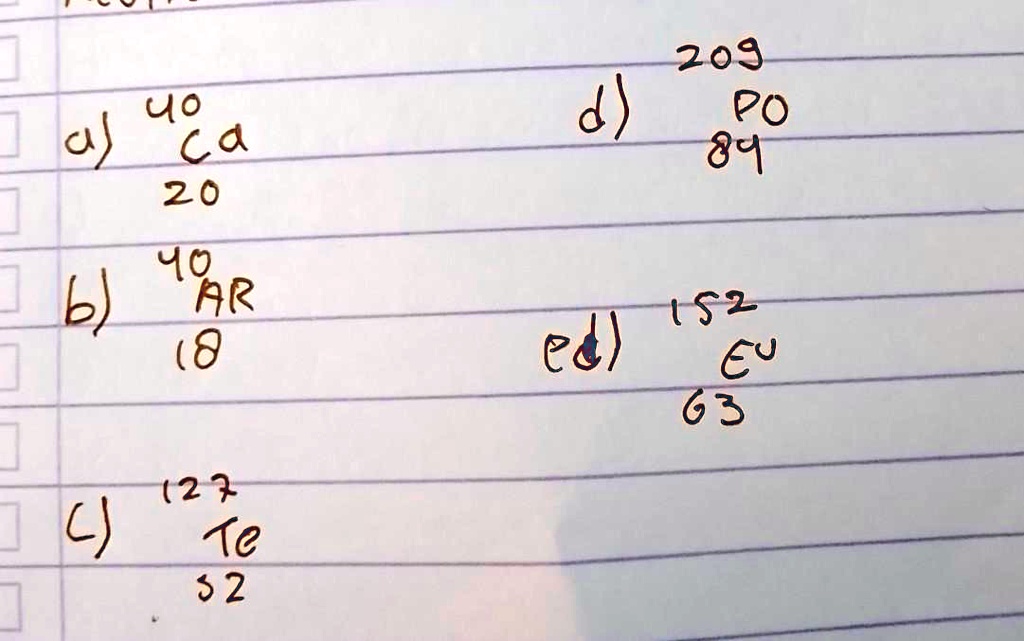 a) 40
Ca
20
b) 40
AR
18
c) 127
Te
52
d) 209
PO
84
e) 152
EU
63